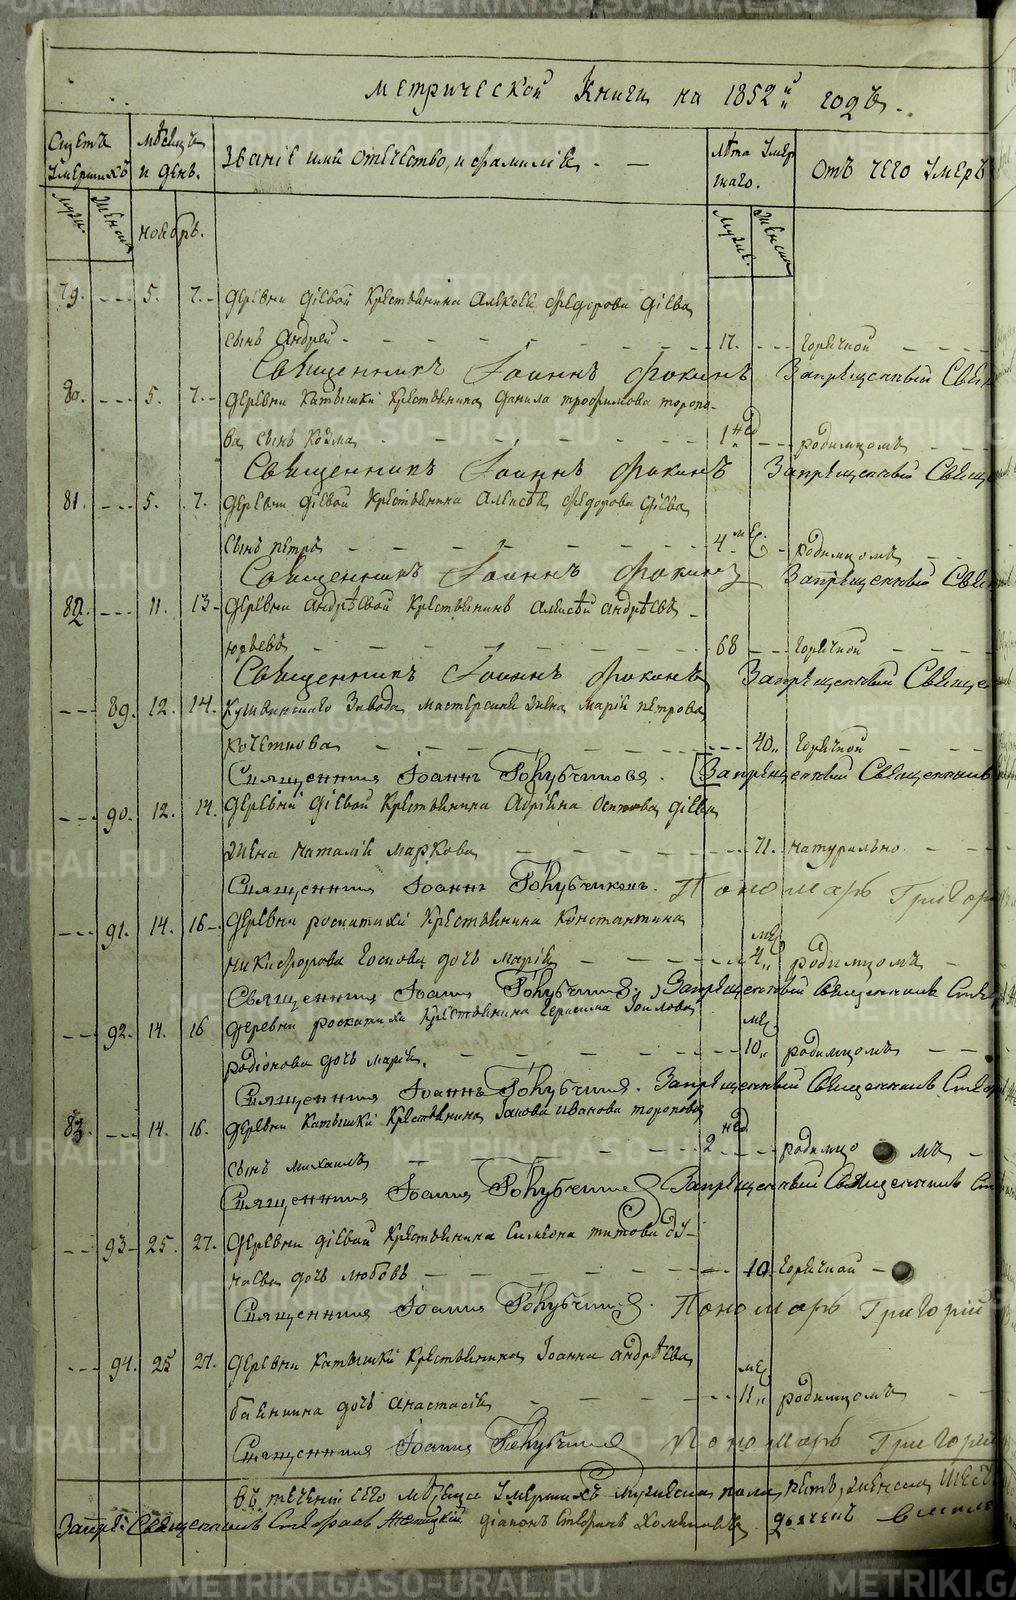 метрической Книги на 1852й годъ.
Счетъ Умершихъ
мѣсяцъ и день.
Званіе имя отчество, и фамилія. —
лѣта умершаго.
отъ чего умеръ
муж. женска
ноябрь.
муже. женска
79. --- 5. 7.- деревни Діевой Крестьянина Алексея Федорова Діева
сынъ Андрей - - - 17. --- горячкой
Священникъ Іоаннъ Фокинъ Запрещенный Свящ
80. --- 5. 7.- деревни Катышки Крестьянина Данила трофимова торопо-
ва сынъ Козма - - - 1 нед --- родимцомъ
Священникъ Іоаннъ Фокинъ Запрещенный Священ
81. --- 5. 7. деревни Діевой Крестьянина Алексѣя Федорова Діева
сынъ петръ - - - 4 мес. - родимцомъ
Священникъ Іоаннъ Фокинъ Запрещенный Свящ
82. --- 11. 13- деревни Андрѣевой Крестьянинъ Алексѣй Андрѣевъ
юрьевъ - - - 68 --- горячкой
Священникъ Іоаннъ Фокинъ Запрещенный Священ
--- 89. 12. 14. Кушвинскаго Завода мастерскаго жена Марія петрова
кочеткова - - - 40.. горячкой
Священник Іоаннъ Голубчиковъ. Запрещенный Священникъ
--- 90. 12. 14. деревни Діевой Крестьянина Адріяна Осипова Діева
жена Наталія маркова - - - 71. натурально
Священник Іоаннъ Голубчиковъ. Пономарь Григорій
--- 91. 14. 16- деревни роскатихи Крестьянина Константина
никифорова дочь марія - - - 4 мес родимцомъ
Священник Іоаннъ Голубчиковъ, Запрещенный Священникъ Стеф
--- 92. 14. 16 деревни роскатихи Крестьянина герасима Зоилова
родіонова дочь марія. - - - 10 мес родимцомъ
Священник Іоаннъ Голубчиковъ. Запрещенный Священникъ Стефа
83. --- 14. 16. деревни Катышки Крестьянина Іакова иванова торопова
сынъ михаилъ - - - 2 нед --- родимцомъ
Священник Іоаннъ Голубчиковъ Запрещенный Священникъ Ст
--- 93- 25. 27. деревни Діевой Крестьянина Симеона титова ду-
наева дочь любовь - - - 10 горячкой
Священник Іоаннъ Голубчиковъ. Пономарь Григорій
--- 94. 25 27. деревни Катышки Крестьянина Іоанна андрѣева
баянкина дочь анастасія - - - 11 мес родимцомъ
Священник Іоаннъ Голубчиковъ Пономарь Григорій
въ теченіи сего мѣсяца умершихъ мужеска пола пять, женска шесть
Запрещ Священникъ Стефанъ діаконъ Стефанъ Хомяковъ дьячекъ
METRIKI.GASO-URAL.RU